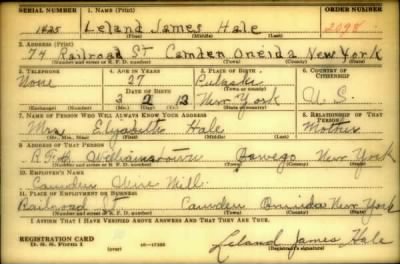 SERIAL NUMBER 1. NAME (Print) ORDER NUMBER
1425 Leland James Hale 2098
(First) (Middle) (Last)
2. ADDRESS (Print)
74 Railroad St Camden Oneida New York
(Number and street or R. F. D. number) (Town) (County) (State)
3. TELEPHONE 4. AGE IN YEARS 5. PLACE OF BIRTH 6. COUNTRY OF CITIZENSHIP
None 27 Pulaski
DATE OF BIRTH (Town or county)
3 2 13 New York U. S.
(Exchange) (Number) (Mo.) (Day) (Yr.) (State or country)
7. NAME OF PERSON WHO WILL ALWAYS KNOW YOUR ADDRESS 8. RELATIONSHIP OF THAT PERSON
Mrs Elizabeth Hale Mother
(Mr., Mrs., Miss) (First) (Middle) (Last)
9. ADDRESS OF THAT PERSON
Williamstown Oswego New York
(Number and street or R. F. D. number) (Town) (County) (State)
10. EMPLOYER'S NAME
Camden Wire Mill
11. PLACE OF EMPLOYMENT OR BUSINESS
Railroad St Camden Oneida New York
(Number and street or R. F. D. number) (Town) (County) (State)
I AFFIRM THAT I HAVE VERIFIED ABOVE ANSWERS AND THAT THEY ARE TRUE.
REGISTRATION CARD
D. S. S. Form 1 (over) 16-17105 Leland James Hale
(Registrant's signature)